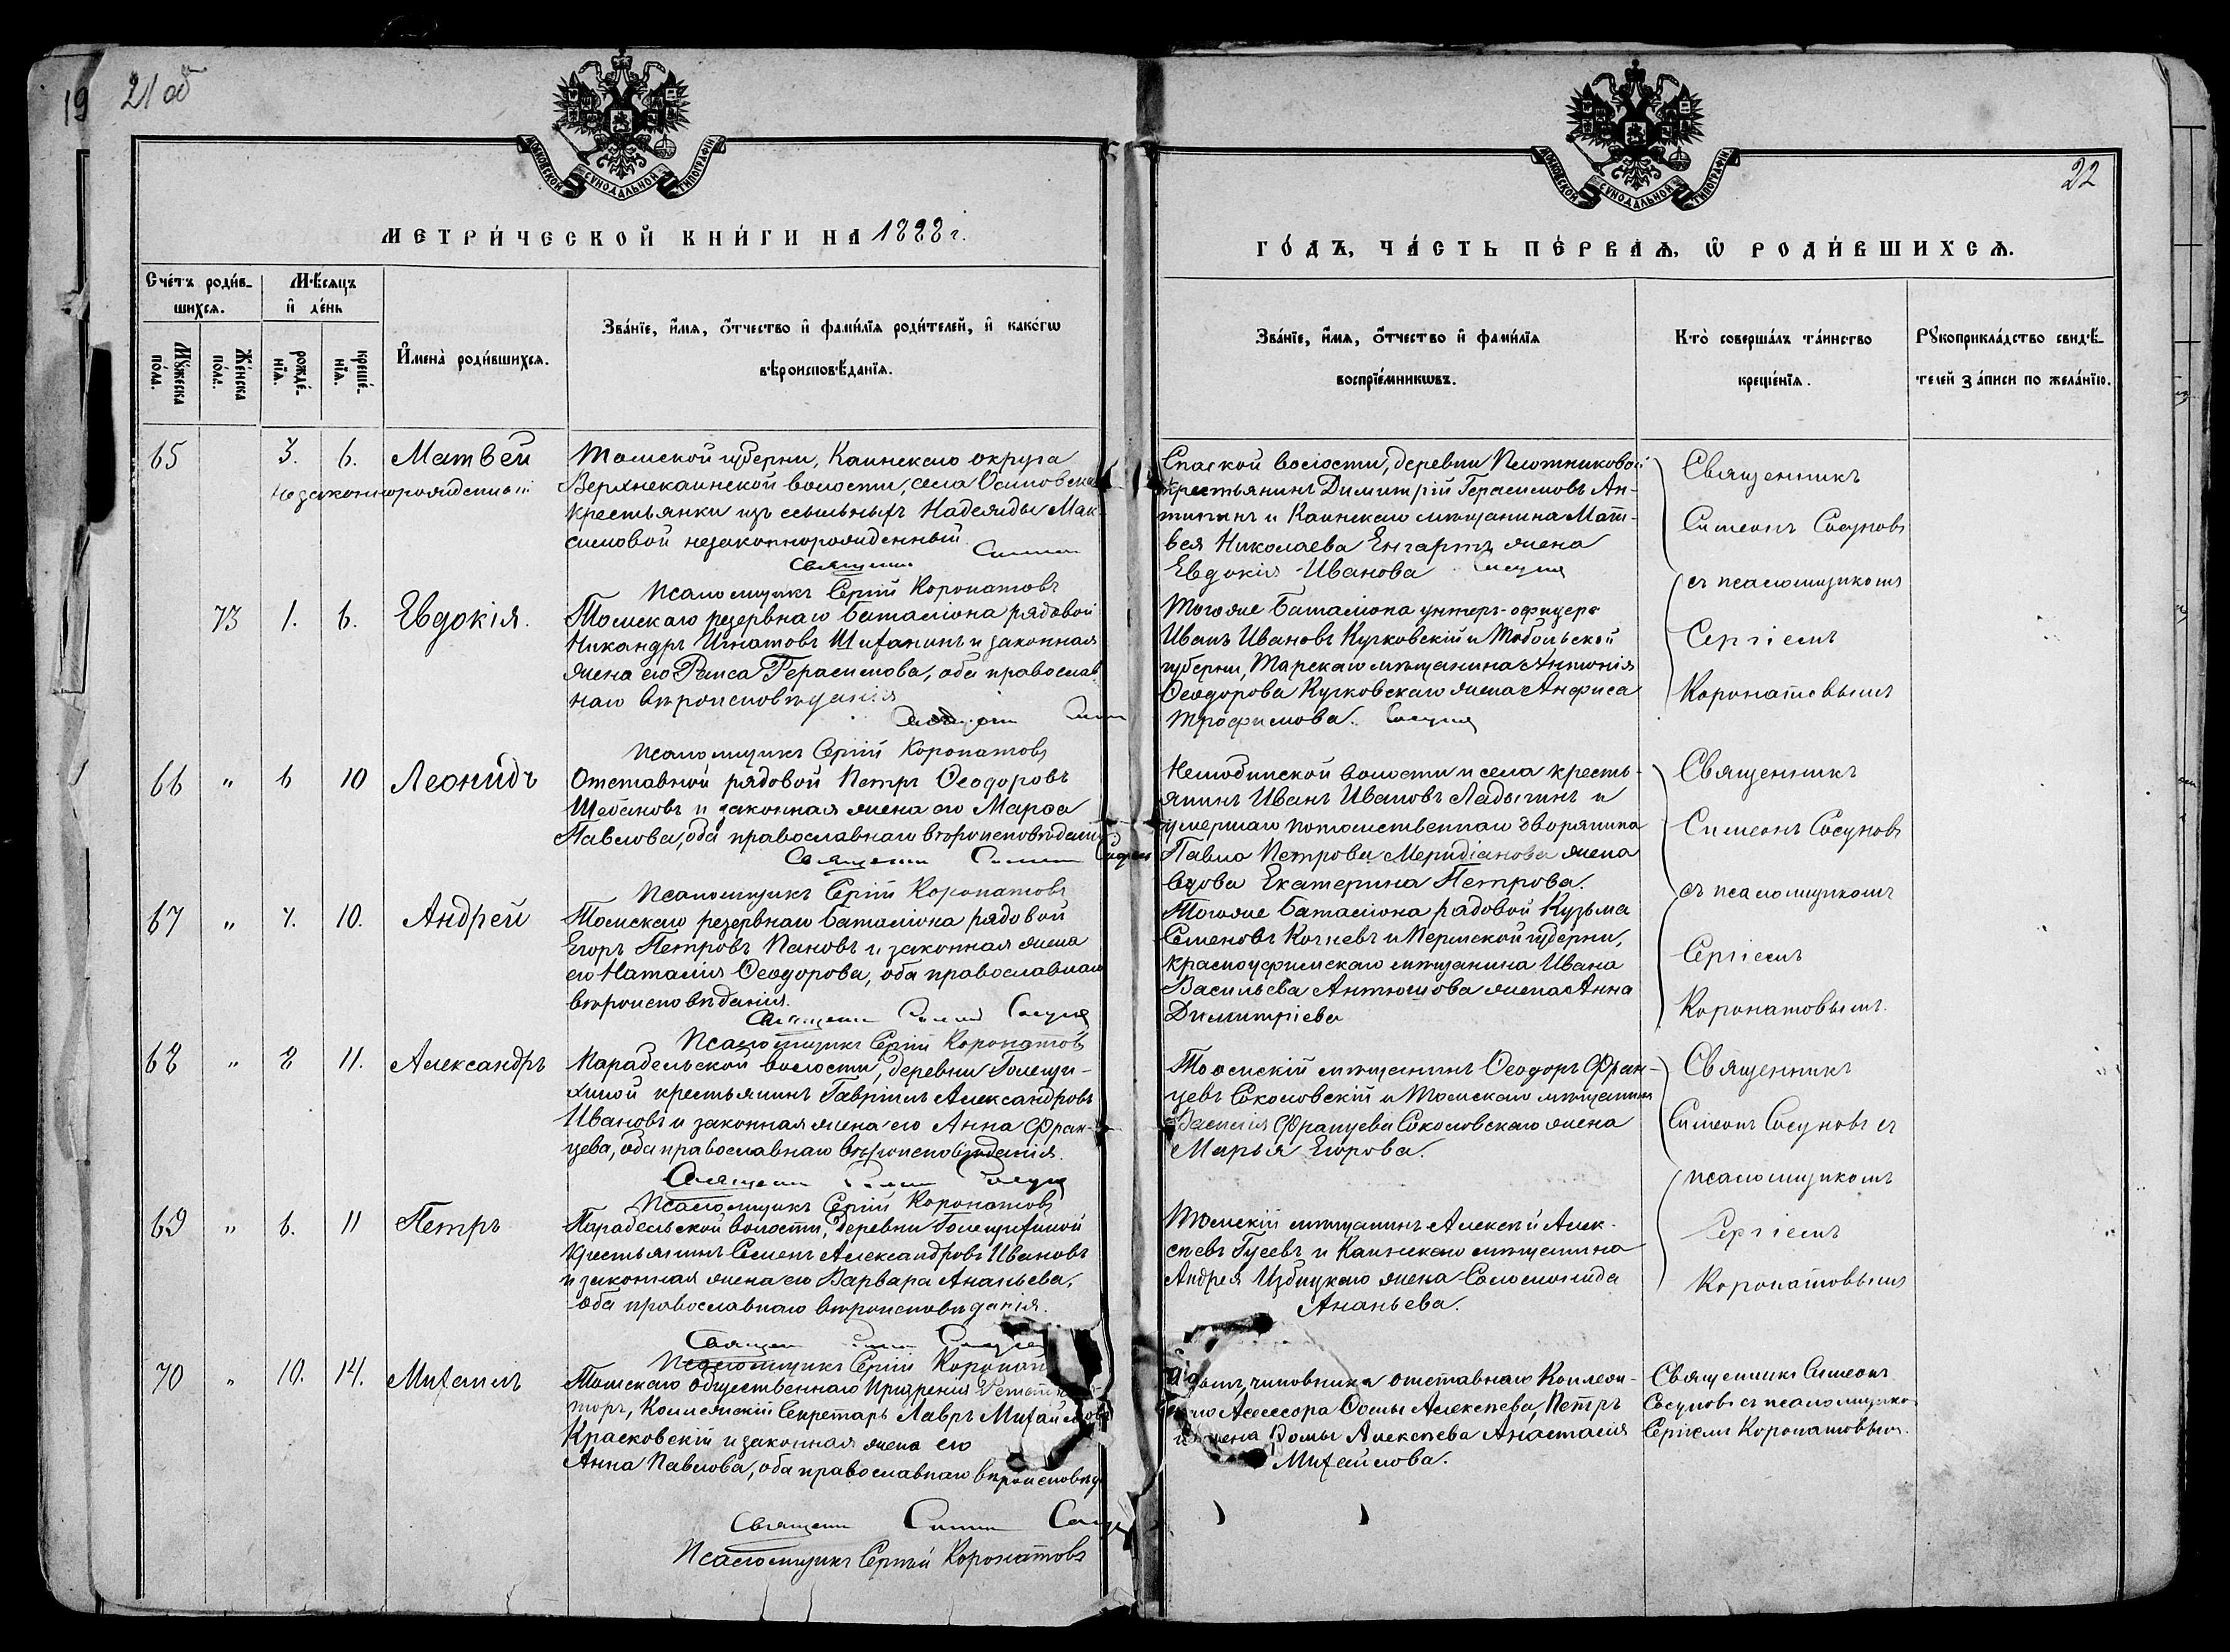 21 об
22
МОСКОВСКОЙ СѴНОДАЛЬНОЙ ТИПОГРАФІИ
МОСКОВСКОЙ СѴНОДАЛЬНОЙ ТИПОГРАФІИ
МЕТРИ́ЧЕСКОЙ КНИ́ГИ НА 1888 г.
ГО́ДЪ, ЧА́СТЬ ПЕ́РВАѦ, Ѡ РОДИ́ВШИХСѦ.
Сче́тъ роди́в-
шихсѧ.
Мꙋ́жеска по́ла.
Же́нска по́ла.
Мѣ́сѧцъ
и҆ де́нь
рожде́-
нїѧ.
креще́-
нїѧ.
И҆мена̀ роди́вшихсѧ.
Зва́нїе, и҆́мѧ, ѻ҆́тчество и҆ фами́лїѧ роди́телей, и҆ како́гѡ
вѣроисповѣ́данїѧ.
Зва́нїе, и҆́мѧ, ѻ҆́тчество и҆ фами́лїѧ
воспрїе́мникѡвъ.
Кто̀ соверша́лъ та́инство
креще́нїѧ.
Рꙋкоприкла́дство свидѣ́-
телей за́писи по жела́нїю.
65 3. 6. Матвей
незаконнорожденный
Томской губерни, Каинскаго округа
Верхнекаинской волости, села Осиновска
крестьянки изъ ссыльныхъ Надежды Мак-
симовой незаконнорожденный
Священникъ Симеонъ
Псаломщикъ Сергій Коронатовъ
Спаской волости, деревни Плотниковой
крестьянинъ Димитрій Герасимовъ Ан-
типинъ и Каинскаго мѣщанина Мат-
вея Николаева Енгартъ жена
Евдокія Иванова Сосунов
Священникъ
Симеонъ Сосуновъ
съ псаломщикомъ
Сергіемъ
Коронатовымъ
73 1. 6. Евдокія.
Томскаго резервнаго баталіона рядовой
Никандръ Игнатовъ Шихалинъ и законная
жена его Раиса Герасимова, оба православ-
наго вѣроисповѣданія
Священникъ Симеонъ
Псаломщикъ Сергій Коронатовъ
Тогоже баталіона унтеръ-офицеръ
Иванъ Ивановъ Кучковскій и Тобольской
губерни, Тарскаго мѣщанина Антонія
Ѳеодорова Кучковскаго жена Анфиса
Трофимова. Сосунов
66 " 6 10 Леонидъ
Отставной рядовой Петръ Ѳеодоровъ
Шебановъ и законная жена его Марѳа
Павлова, оба православнаго вѣроисповѣдани
Священникъ Симеонъ Сосунов
Псаломщикъ Сергій Коронатовъ
Нелюбинской волости и села кресть-
янинъ Иванъ Ивановъ Ладыгинъ и
умершаго потомственнаго дворянина
Павла Петрова Меридіанова жена
вдова Екатерина Петрова.
Священникъ
Симеонъ Сосуновъ
съ псаломщикомъ
Сергіемъ
Коронатовымъ.
67 " 7. 10. Андрей
Томскаго резервнаго баталіона рядовой
Егоръ Петровъ Пановъ и законная жена
его Наталія Ѳеодорова, оба православнаго
вѣроисповѣданія.
Священникъ Симеонъ Сосунов
Псаломщикъ Сергій Коронатовъ
Тогоже баталіона рядовой Кузьма
Семеновъ Кочневъ и Пермской губерни,
красноуфимскаго мѣщанина Ивана
Васильева Антюшова жена Анна
Димитріева
68 " 8 11. Александръ
Парабельской волости, деревни Голещи-
хиной крестьянинъ Гавріилъ Александровъ
Ивановъ и законная жена его Анна Фран-
цева, оба православнаго вѣроисповѣданія.
Священникъ Симеонъ Сосунов
Псаломщикъ Сергій Коронатовъ
Томскій мѣщанинъ Ѳеодоръ Фран-
цевъ Соколовскій и Томскаго мѣщанин
Василія Францева Соколовскаго жена
Марья Егорова.
Священникъ
Симеонъ Сосуновъ съ
псаломщикомъ
Сергіемъ
Коронатовымъ
69 " 6. 11 Петръ
Парабельской волости, деревни Голещихиной
крестьянинъ Семенъ Александровъ Ивановъ
и законная жена его Варвара Ананьева,
оба православнаго вѣроисповѣданія.
Священ Симеонъ Сосунов
Псаломщикъ Сергій Коронат
Томскій мѣщанинъ Алексѣй Алек-
сѣевъ Гусевъ и Каинскаго мѣщанина
Андрея Избицкаго жена Соломонида
Ананьева.
70 " 10. 14. Михаилъ
Томскаго общественнаго Призренія
торъ, Коллежскій Секретарь Лавръ Михайловъ
Красковскій и законная жена его
Анна Павлова, оба православнаго вѣроисповѣд
Священникъ Симеонъ Сосун
Псаломщикъ Сергѣй Коронатовъ
чиновника отставнаго Коллеж-
Ассесора Ѳомы Алексѣева, Петръ
и жена Ѳомы Алексѣева Анастасія
Михайлова.
Священникъ Симеонъ
Сосуновъ съ псаломщико
Сергіемъ Коронатовым.